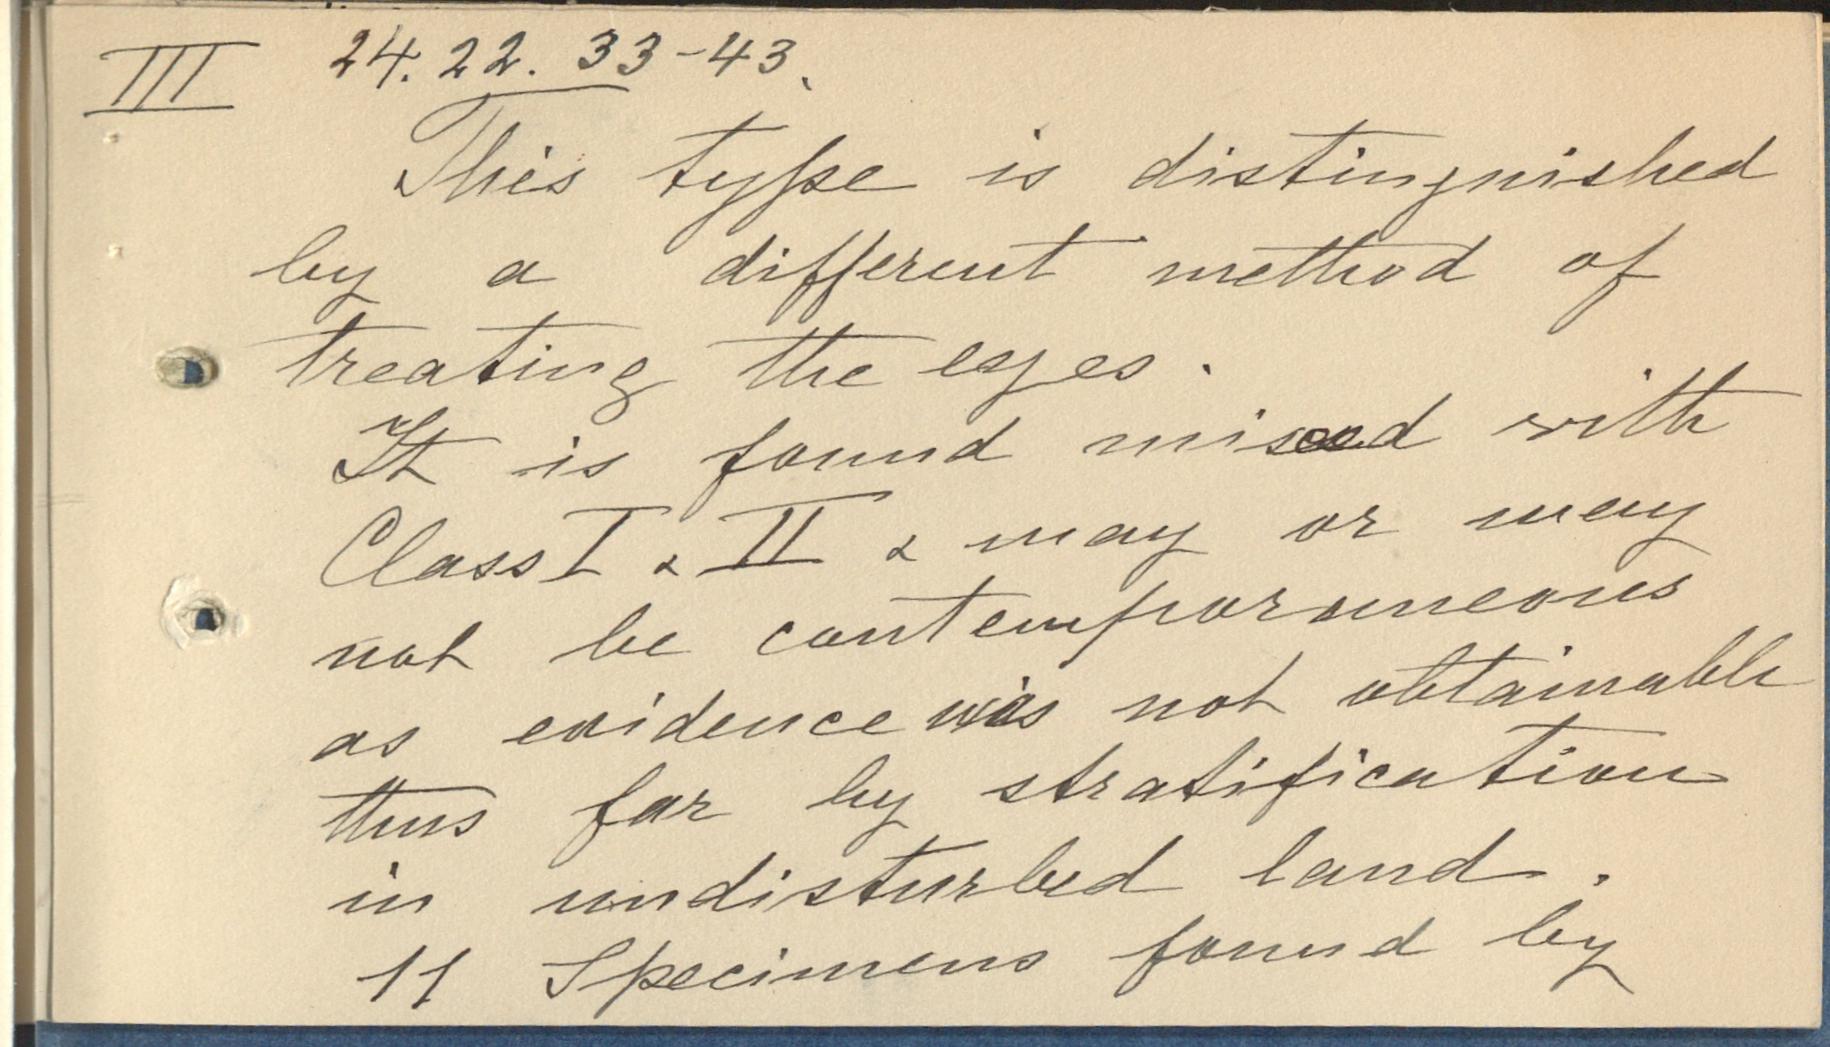 III 24.22. 33-43.
This type is distinguished
by a different method of
treating the eyes.
It is found mixed with
Class I & II & may or may
not be contemporaneous
as evidence was not obtainable
thus far by stratification
in undisturbed land.
11 Specimens found by